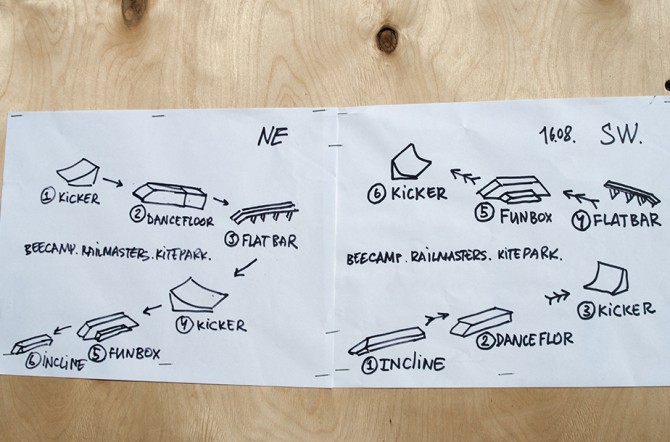 NE
① KICKER
② DANCEFLOOR
③ FLATBAR
BEECAMP. RAILMASTERS. KITEPARK.
④ KICKER
⑤ FUNBOX
⑥ INCLINE
16.08. SW.
⑥ KICKER
⑤ FUNBOX
④ FLATBAR
BEECAMP. RAILMASTERS. KITEPARK.
③ KICKER
② DANCEFLOR
① INCLINE